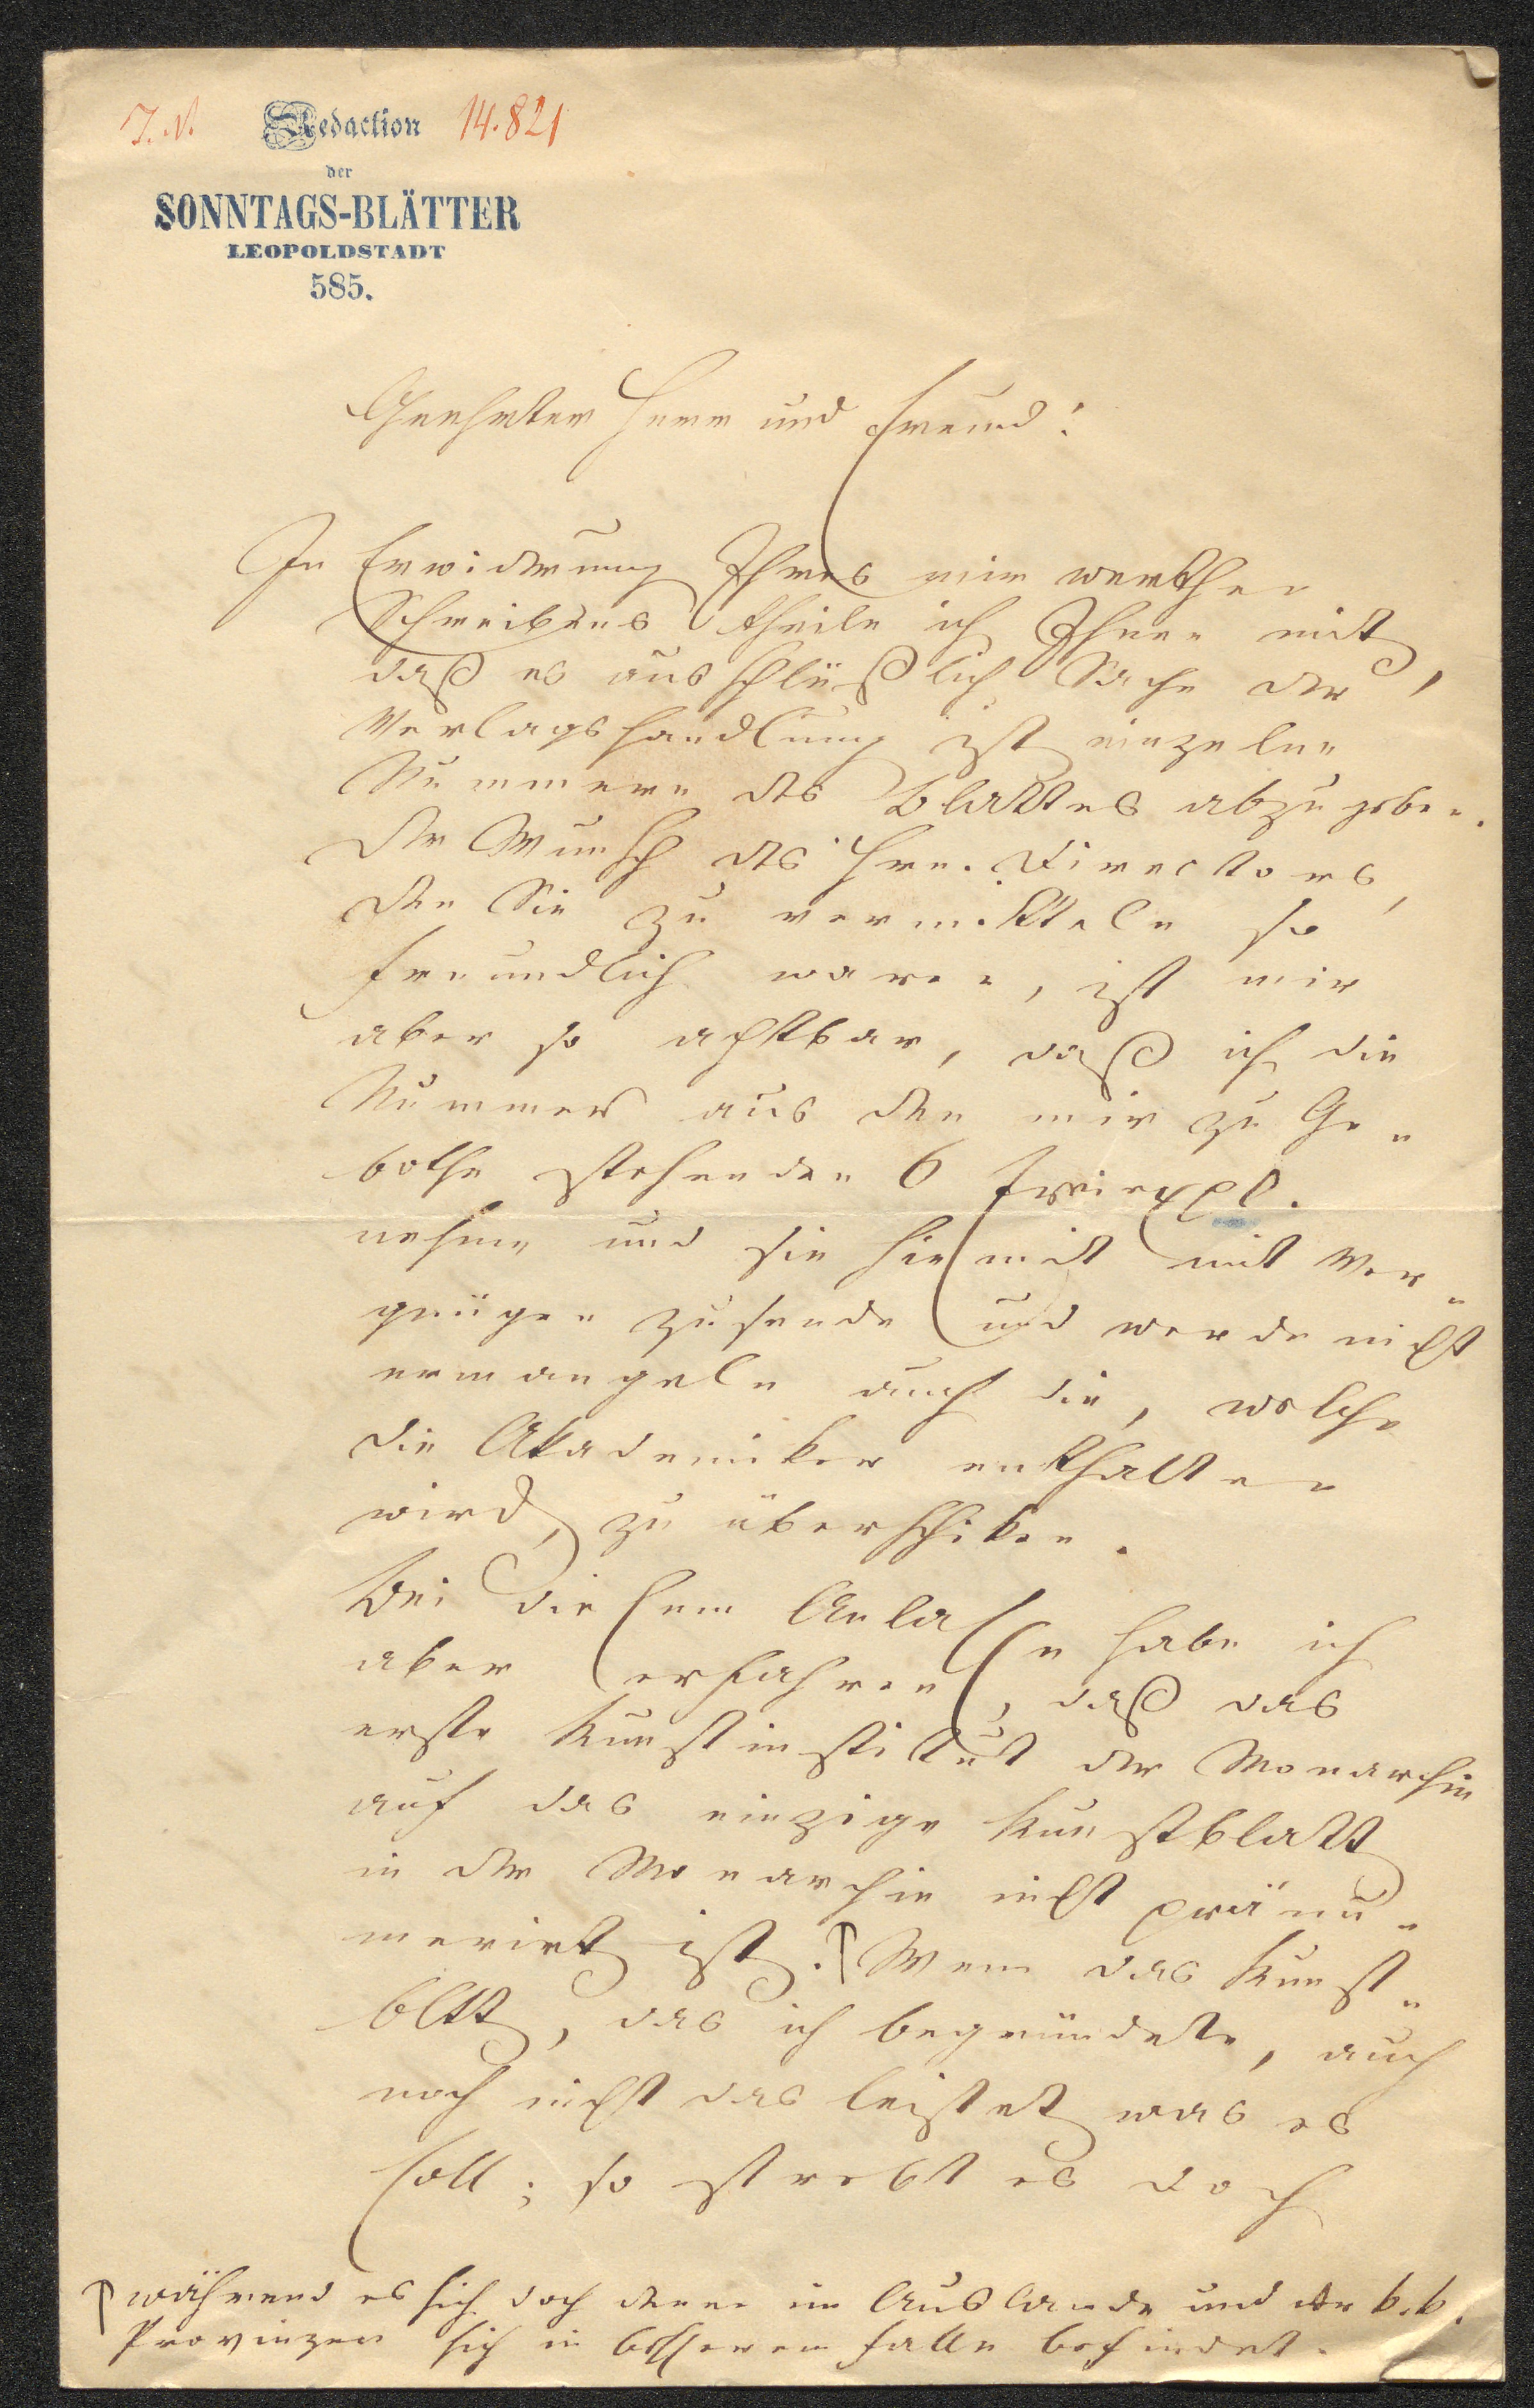 I. N. Redaction 14.821
der
SONNTAGS-BLÄTTER
LEOPOLDSTADT
585.
Geehrter Herr und Freund!
In Erwiderung Ihres mir werthen
Schreibens theile ich Ihnen mit,
daß es ausschlüßlich Sache der
Verlagshandlung ist einzelne
Nummern des Blattes abzugeben.
Der Wunsch des Hrn. Directors,
den Sie zu vermitteln so
freundlich waren, ist mir
aber so achtbar, daß ich die
Nummer aus den mir zu Ge-
bothe stehenden 6 Freiexpl.
nehme und sie hiemit mit Ver-
gnügen zusende und werde nicht
ermangeln auch die, welche
die Akademiker enthalten
wird, zu überschiken.
Bei diesem Anlasse habe ich
aber erfahren, daß das
erste Kunstinstitut der Monarchie
auf das einzige Kunstblatt
in der Monarchie nicht pränu-
merirt ist. Wenn das Kunst-
bltt, das ich begründete, auch
noch nicht das leistet was es
soll; so strebt es doch
während es sich doch im Auslande und der k.k.
Provinzen sich in besserem Falle befindet.